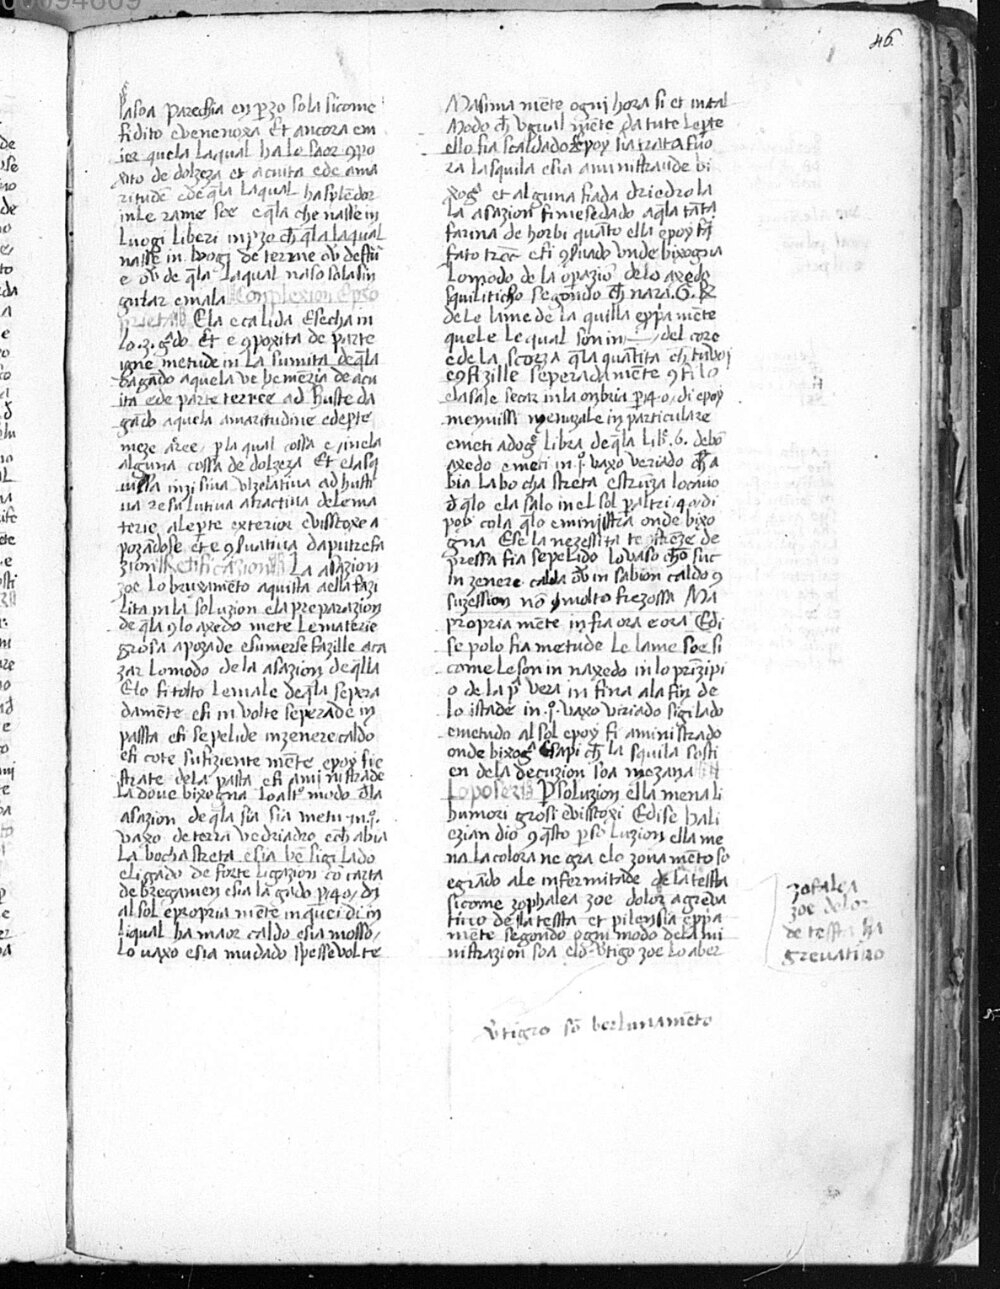 46
lasoa parechia en pzo sola sicome
fidito e venenoxa Et ancora em
ier quela laqual ha lo saor 9po
xito de dolzeza et acuita e de ama
ritudē e de q̄la laqual ha splēdor
in le rame soe e q̄la che nasse in
Luogi liberi in pzo ch̄ q̄la laqual
nasse in luogi de terme ov̄ de stiū
e ov̄ de q̄la laqual naso sola sin
gular e mala Conplexion e pro
prieta Ela e calida e secha in
lo .3. g̊do Et e 9poxita de parte
igne metude in la sumita de q̄la
dagādo aquela vehemēzia de acu
ita e de parte terree ad huste da
gādo aquela amaritudine e de pte
meze aree, p la qual cossa e, in ela
alguna cossa de dolzeza Et ela sq
uilla inzisiva vizelativa ad husti
va resulutiva atractiva de le ma
terie a le pte exterior e visstoxe a
pozādose et e 9svativa da putrefa
zion Retificazion La asazion
zoe lo bruxamēto aquista a ella fazi
lita in la soluzion e la preparazion
de q̄la 9 lo axedo mete le materie
grosa apozade e sumerse fazille a ca
zar lo modo de la asazion de q̄lla
E lo fi tolto le male de q̄la sepera
damēte e fi involte seperade in
passta e fi sepelide in zenere caldo
e fi cote sufiziente mēte e poy fie
strate de la pasta e fi aministrade
la dove bixogna lo altº modo d̄la
asazion de q̄la sia sia metu .in.j.
vaxo de terra vedriado e ch̄ abia
la bocha streta e sia bē sigilado
e ligado de forte ligazion cō carta
de bregamen e sia lagado p 40, di
al sol e propria mēte in quei di in
li qual ha maor caldo e sia mosso,
lo vaxo e sia mudado spesse volte
Masima mēte ogni hora si et in tal
Modo ch̄ vgual mēte da tute le pte
ello sia scaldado e poy sia trata fuo
ra la squila e sia aministraude bi
xog̊ et alguna fiada driedro la
la asazion fi mesedado a q̄la tāta
farina de horbi quāto ella e poy fi
fato troc̄ e fi 9svado vnde bixogna
lo modo de la opazio de lo axedo
squilitico segondo ch̄ nara .G. ℞
de le lame de la squilla e ppa mēte
quele le qual son in, del core
e de la scorza q̄la quātita ch̄ tu voi
e 9fizille seperada mēte 9 filo
e lasale secar in la onbria p 40, di e poy
menuissi in particulare
e meti ad og̊ libra de q̄la Lib. 6. de bō
axedo e meti in .j. vaxo veriado ch̄ a
bia la bocha streta e struza lo cavo
d q̄lo e la salo in el sol p altri .40. di
poy cola q̄lo e ministra onde bixo
gna E se la nezessita te strēze de
pressa fia sepelido lo vaso
in zenere calda ov̄ in sabion caldo 9
suzession nō molto frezossa Ma
propria mēte in fia ora e ora E di
se polo fia metude le lame soe si
come le son in naxedo in lo prīzipi
o de la pᵃ vera in fina a la fin de
lo istade in .j. vaxo viriado sigilado
e metudo al sol e poy fi aministrado
onde bixog̊ E sapi ch̄ la squila sosti
en de la decuzion soa mezana
Lo poseze P soluzion ella mena li
humori grosi e visstoxi E dise hali
ezian dio 9 q̄sto p se luzion ella me
na la colora negra e lo zovamēto so
e grādo a le infermitade de la tessta
sicome zophalea zoe dolor agreva
tivo de la tessta et pilensia e ppa
mēte segondo ogni modo de la mi
nistrazion soa e lo v̄tigo zoe lo aber
zofalea
zoe dolor
de tessta
grevativo
v̄tigro sō berlunamēto